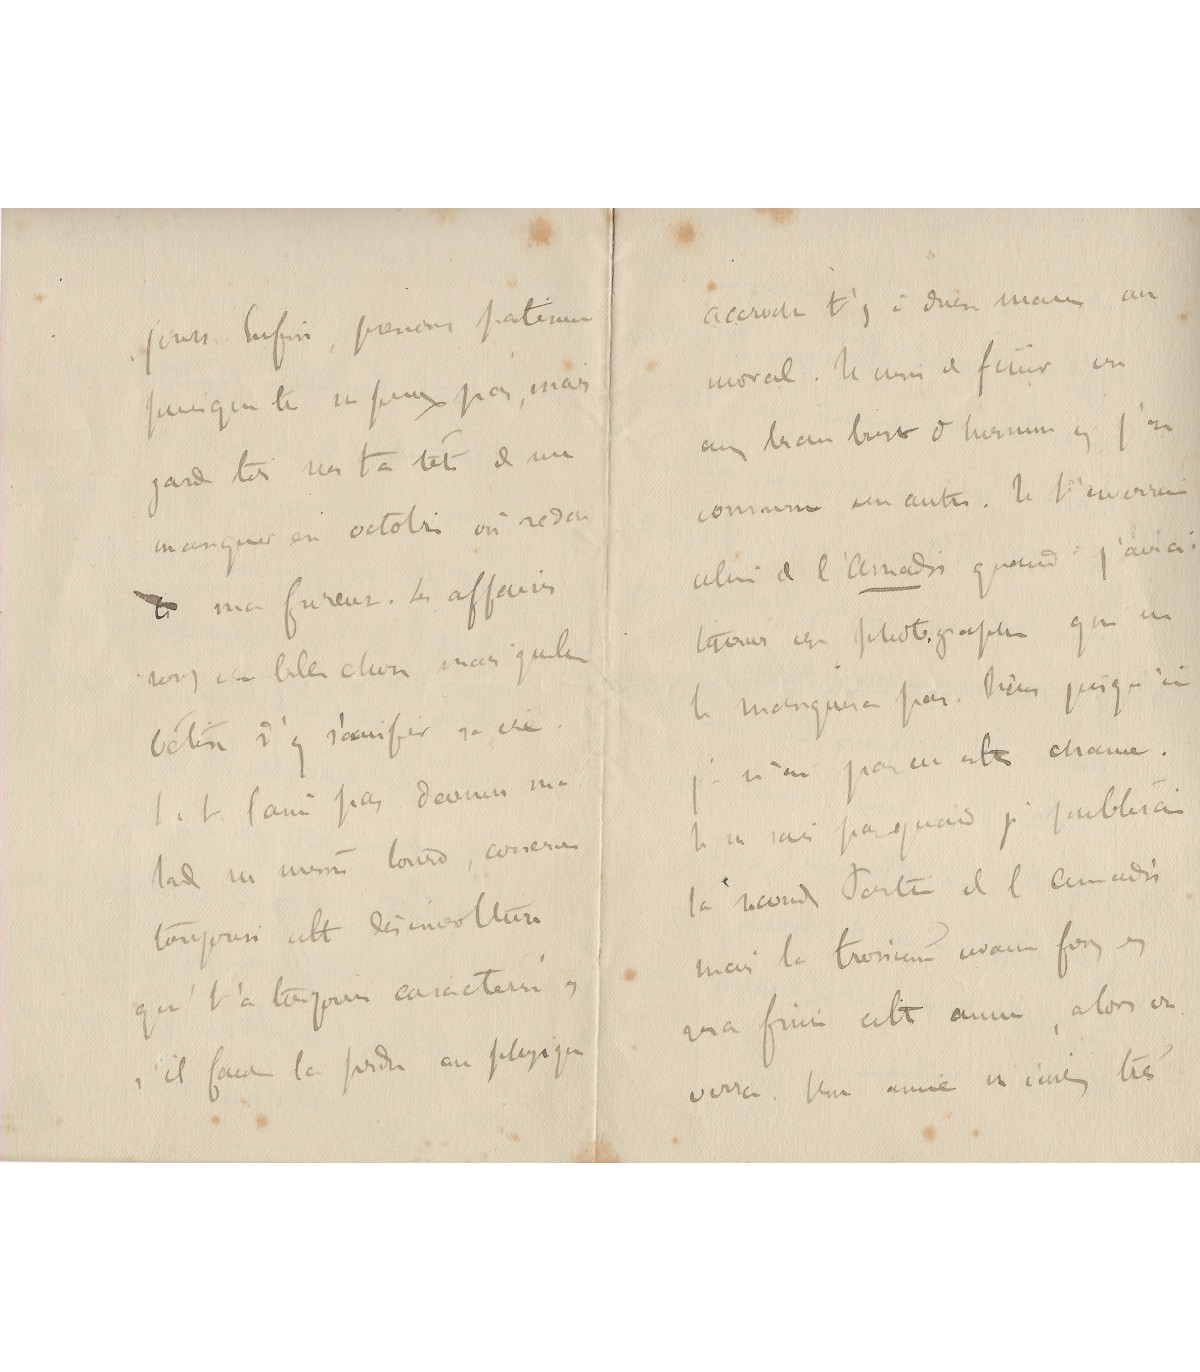 jours. Enfin, prenons patience
puisque tu ne peux pas, mais
garde toi sur ta tête de me
manquer en octobre ou redou
te ma fureur. Les affaires
sont une belle chose mais quelle
bêtise d'y sacrifier sa vie.
Il ne faut pas devenir ma
lade ni même lourd, conserve
toujours cette désinvolture
qui t'a toujours caractérisé et
s'il faut la perdre au physique
accroche t'y à deux mains au
moral. Je viens de finir un
assez beau buste d'homme et j'en
commence un autre. Je t'enverrai
celui de l'Amadis quand j'aurai
une photographie qui ne
te manquera pas. Mais jusqu'ici
je n'ai pas eu cette chance.
Je ne sais pas quand je publierai
la seconde Partie de l'Amadis
mais la troisième avance fort et
sera finie cette année, alors on
verra. Mon amie en est très